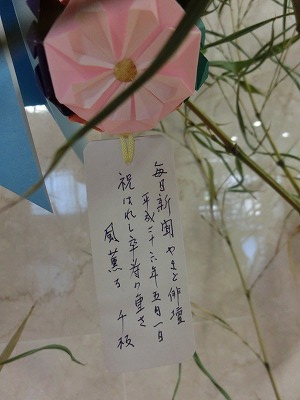 毎日新聞 やまと俳壇
平成二十六年五月一日
祝はれし卒寿の重さ
風薫る 千枝